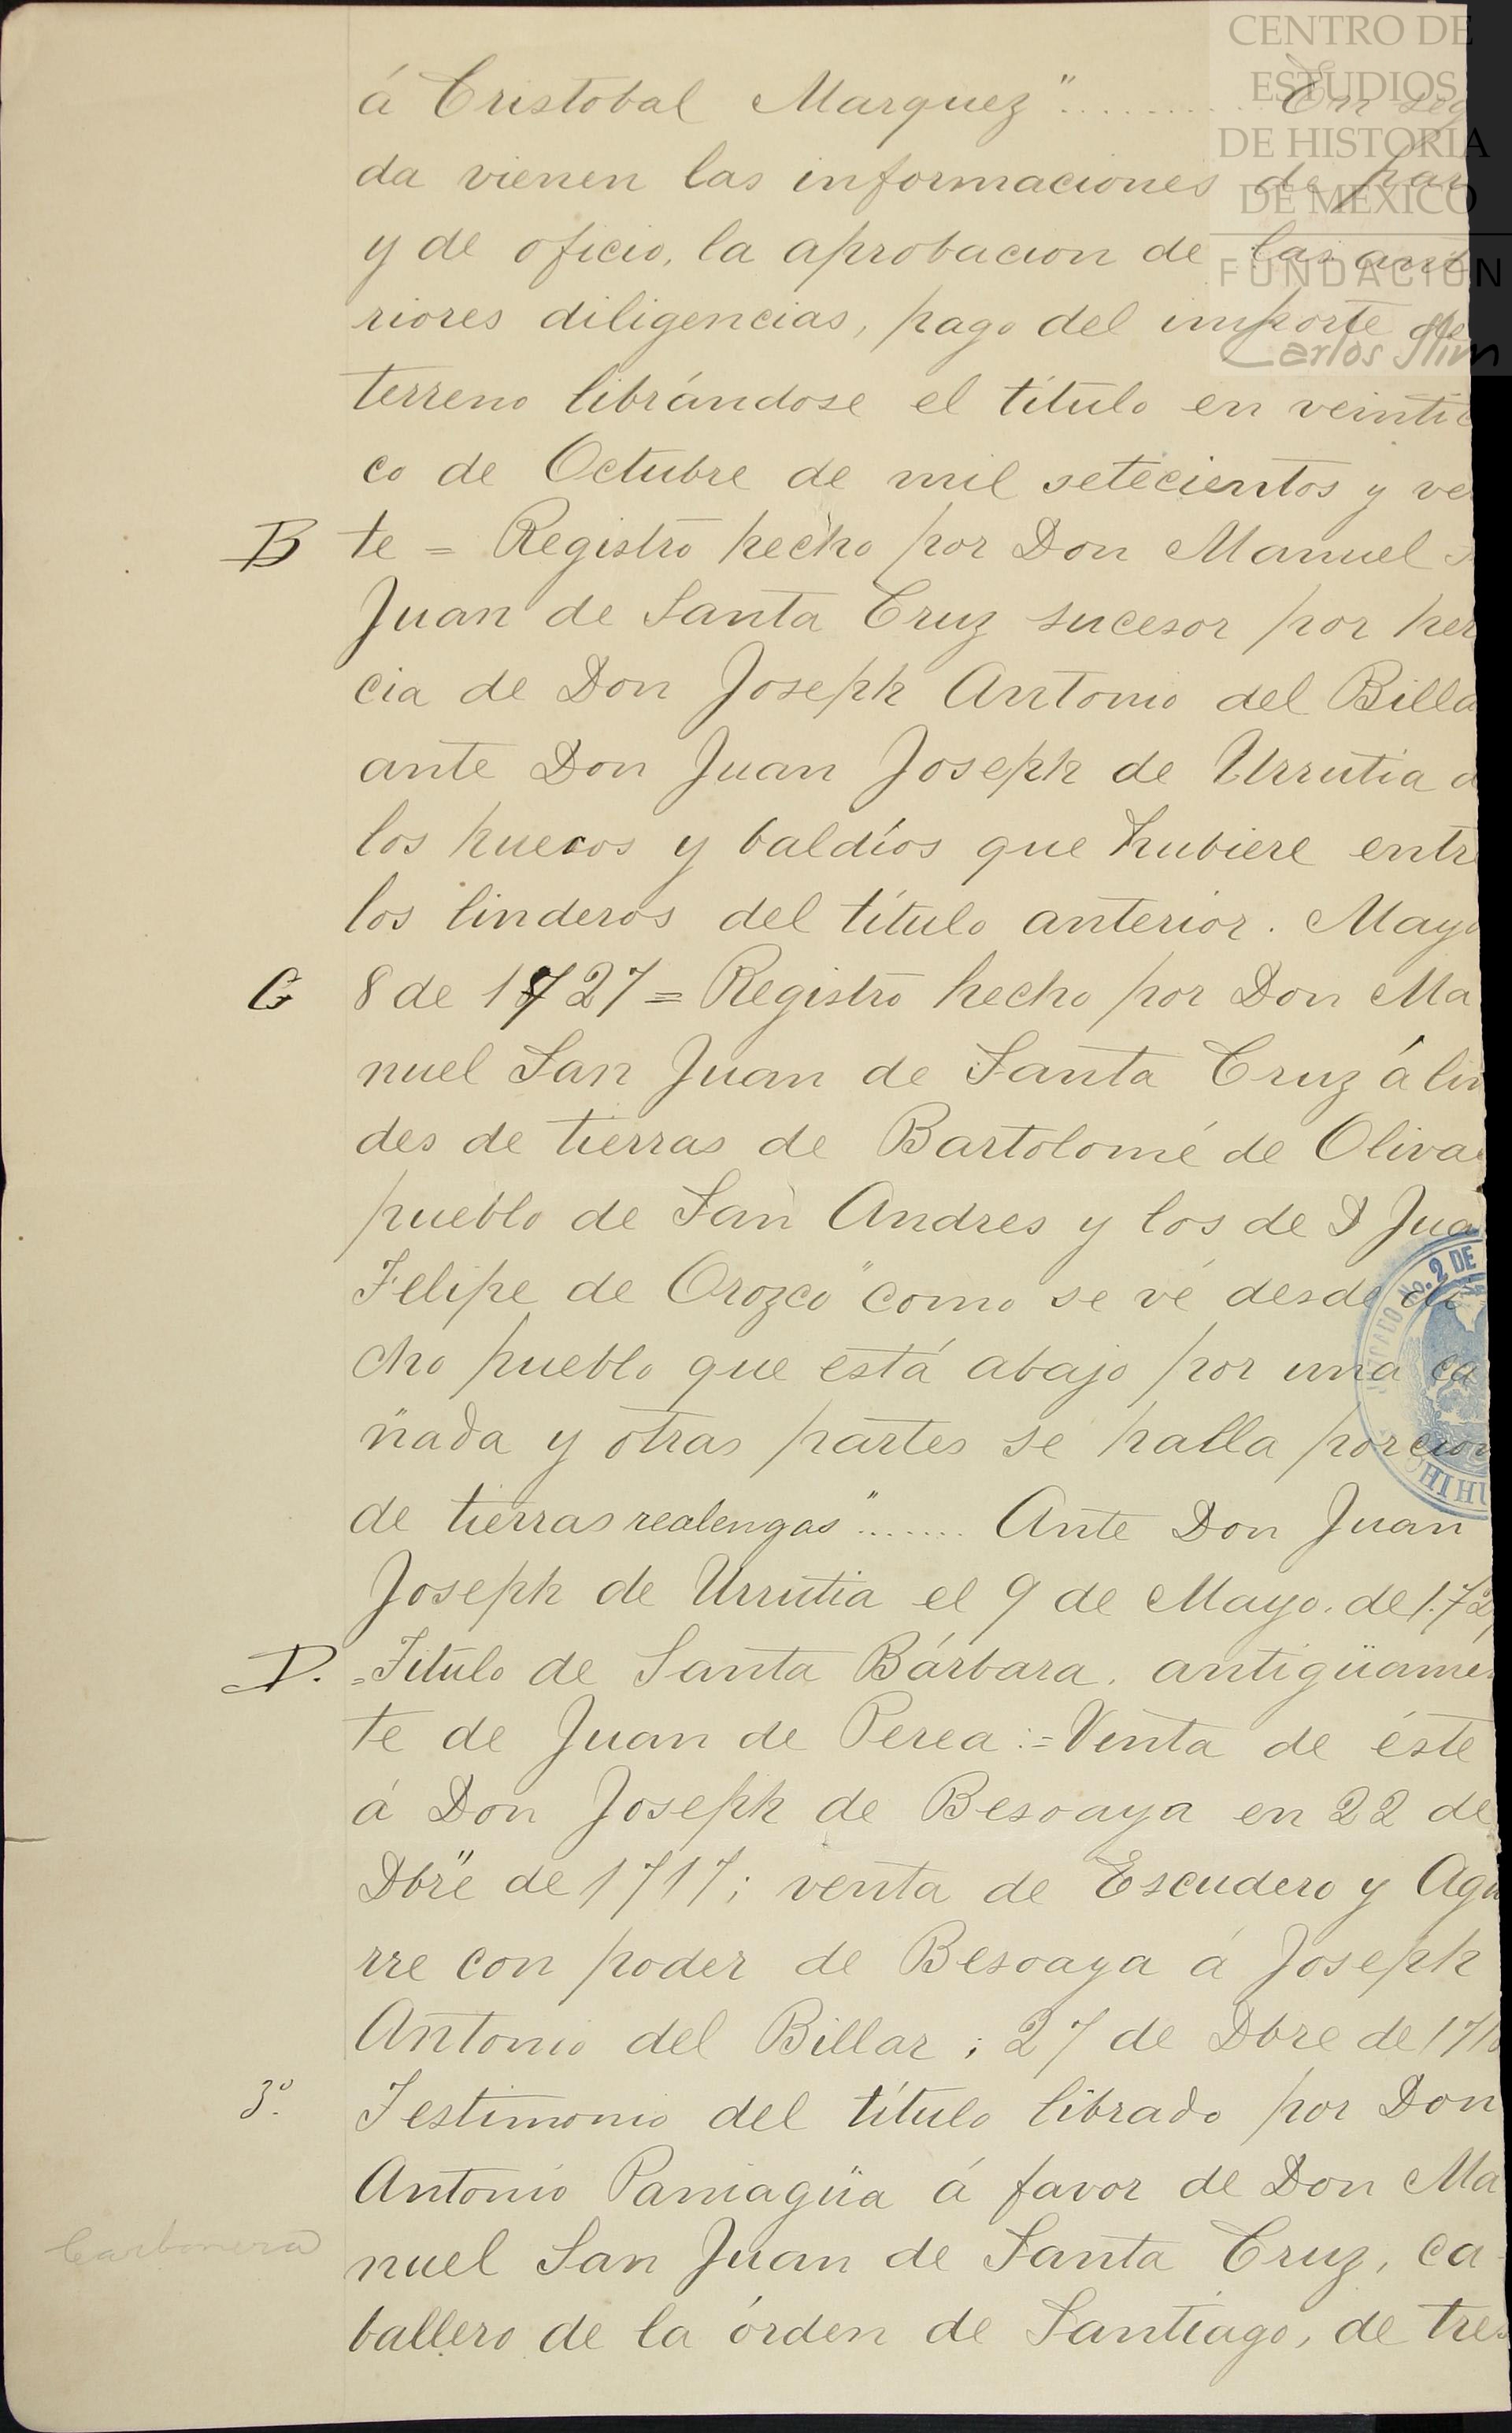 CENTRO DE
ESTUDIOS
DE HISTORIA
DE MEXICO
FUNDACION
Carlos Slim
á Cristobal Marquez" ......... En seg
da vienen las informaciones de par
y de oficio, la aprobacion de las ant
riores diligencias, pago del importe de
terreno librándose el título en veinti
co de Octubre de mil setecientos y ve
B te = Registro hecho por Don Manuel
Juan de Santa Cruz sucesor por her
cia de Don Joseph Antonio del Billa
ante Don Juan Joseph de Urrutia d
los huecos y baldíos que hubiere entre
los linderos del título anterior. Mayo
C 8 de 1727 = Registro hecho por Don Ma
nuel San Juan de Santa Cruz á lin
des de tierras de Bartolomé de Oliva
pueblo de San Andres y los de D Jua
Felipe de Orozco "como se vé desde di
cho pueblo que está abajo por una ca
ñada y otras partes se halla porcion
de tierras realengas" ....... Ante Don Juan
Joseph de Urrutia el 9 de Mayo. de 172
D. =Título de Santa Bárbara. antigüamen
te de Juan de Perea:=Venta de éste
á Don Joseph de Besoaya en 22 de
Dbre de 1717; venta de Escudero y Agu
rre con poder de Besoaya á Joseph
Antonio del Billar; 27 de Dbre de 171
3º. Testimonio del título librado por Don
Antonio Paniagüa á favor de Don Ma
Carbonera
nuel San Juan de Santa Cruz, ca
ballero de la órden de Santiago, de tres
No. 2 DE
HIHU